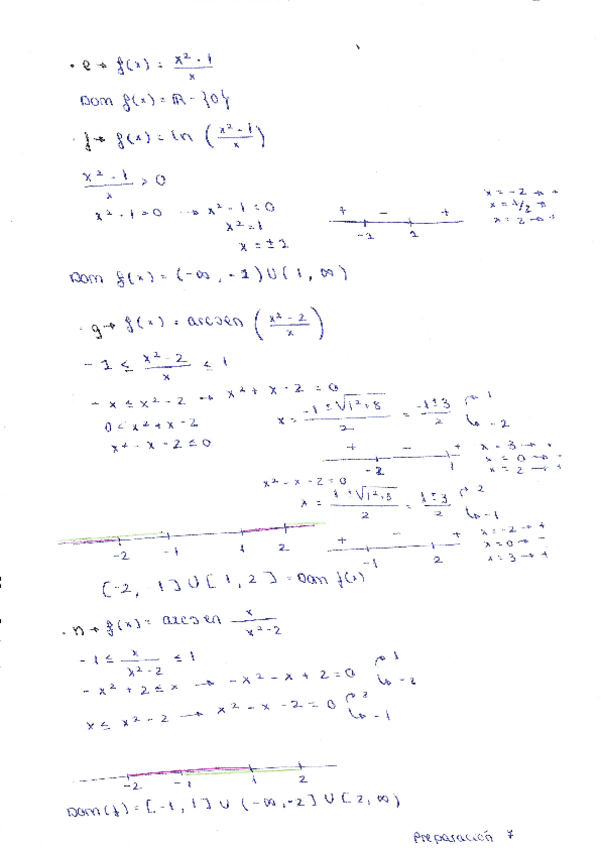 · e → f(x) = x² - 1 / x
Dom f(x) = ℝ - {0}
· f → f(x) = ln (x² - 1 / x)
x² - 1 / x > 0
x² - 1 = 0 → x² - 1 = 0
x² = 1
x = ± 1
+ - +
-1 1
x = -2 → +
x = 1/2
x = 2 → +
Dom f(x) = (-∞, -1) ∪ (1, ∞)
· g → f(x) = arcsen (x² - 2 / x)
-1 ≤ x² - 2 / x ≤ 1
- x ≤ x² - 2 → x² + x - 2 = 0
0 ≤ x² + x - 2
x² - x - 2 ≤ 0
x = -1 ± √1² + 8 / 2 = -1 ± 3 / 2 1 -2
+ - +
-2 1
x = -3 → +
x = 0 → -
x = 2 → +
x² - x - 2 = 0
x = 1 ± √1² + 8 / 2 = 1 ± 3 / 2 2 -1
-2 -1 1 2
+ - +
-1 2
x = -2 → +
x = 0 → -
x = 3 → +
[-2, -1] ∪ [1, 2] = Dom f(x)
· h → f(x) = arcsen x / x² - 2
-1 ≤ x / x² - 2 ≤ 1
- x² + 2 ≤ x → - x² - x + 2 = 0 1 -2
x ≤ x² - 2 → x² - x - 2 = 0 2 -1
-2 -1 1 2
Dom(f) = [-1, 1] ∪ (-∞, -2] ∪ [2, ∞)
Preparación 7